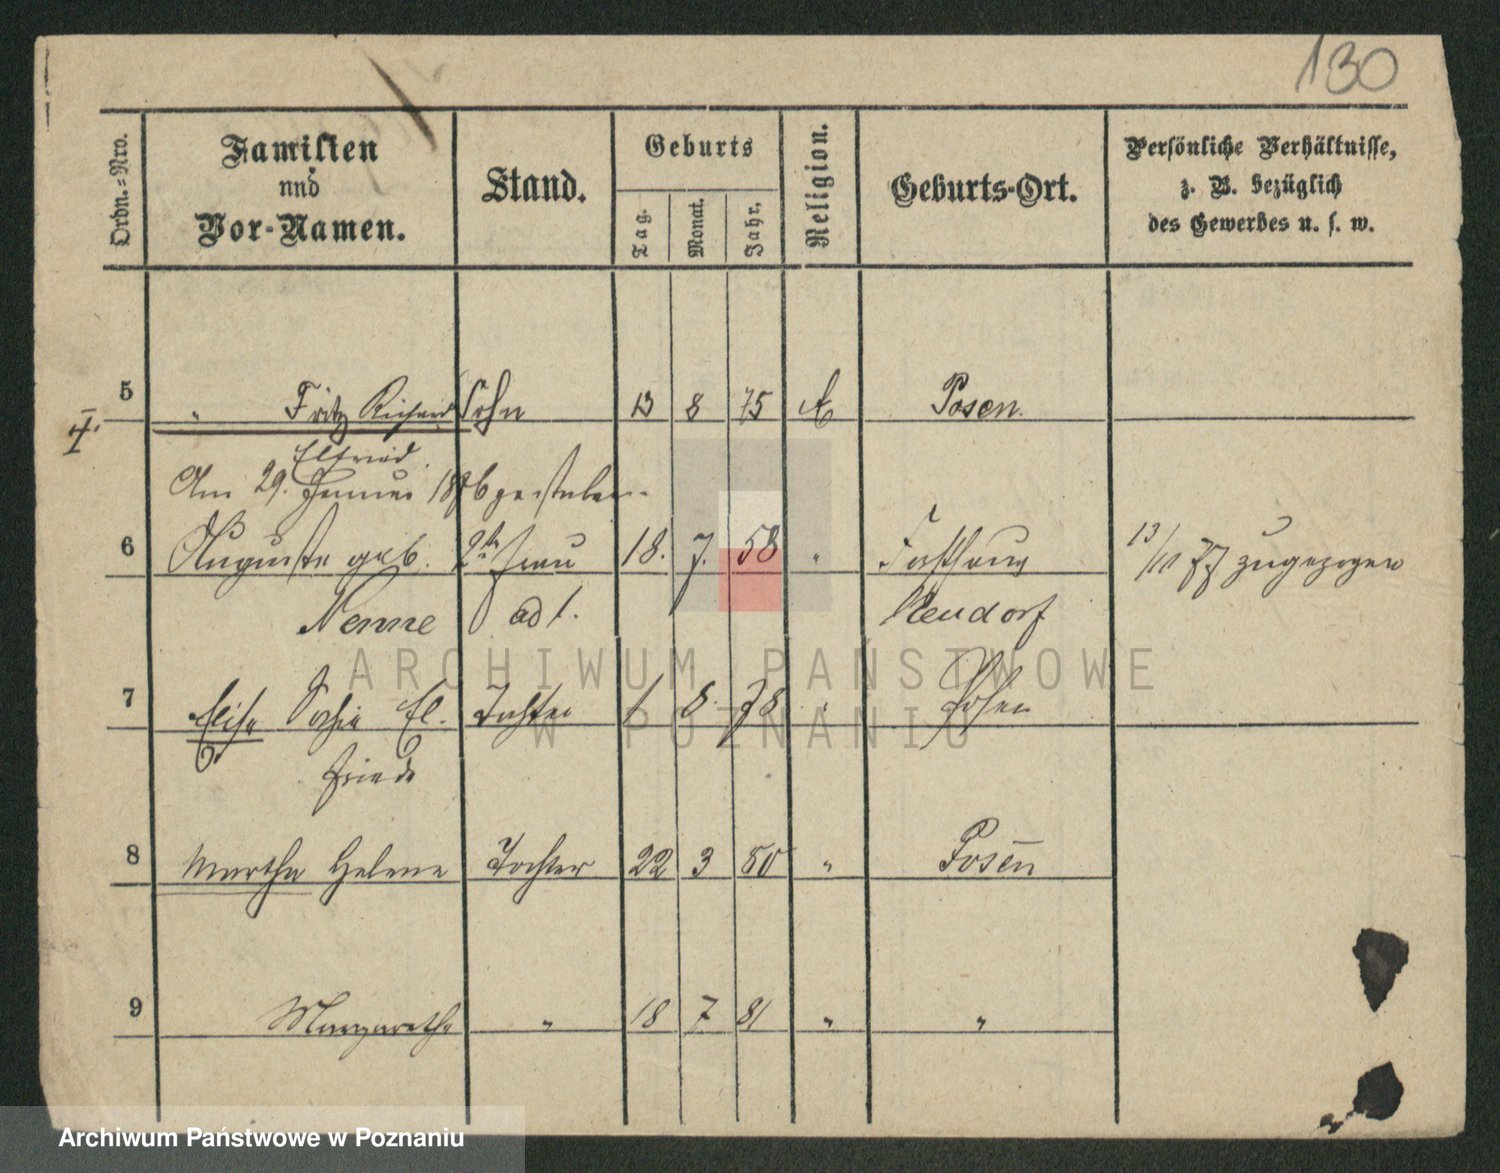 130
Ordn.=Nro.
Familien
und
Vor-Namen.
Stand.
Geburts
Tag.
Monat.
Jahr.
Religion.
Geburts-Ort.
Persönliche Verhältnisse,
z. B. bezüglich
des Gewerbes u. s. w.
5 " Fritz Richard Sohn 13 8 75 Posen.
Elfried.
Am 29. Januar 1876 gestorben.
6 Auguste geb. 2te Frau 18. 7. 58 " 13/10 77 zugezogen
Nenne ad 1. Neudorf
7 Elise Sophie El- Tochter 1 8 78 " Posen
friede
8 Martha Helene Tochter 22 3 80 " Posen
9 Margarethe " 18 7 81 " "
ARCHIWUM PAŃSTWOWE
W POZNANIU
Archiwum Państwowe w Poznaniu